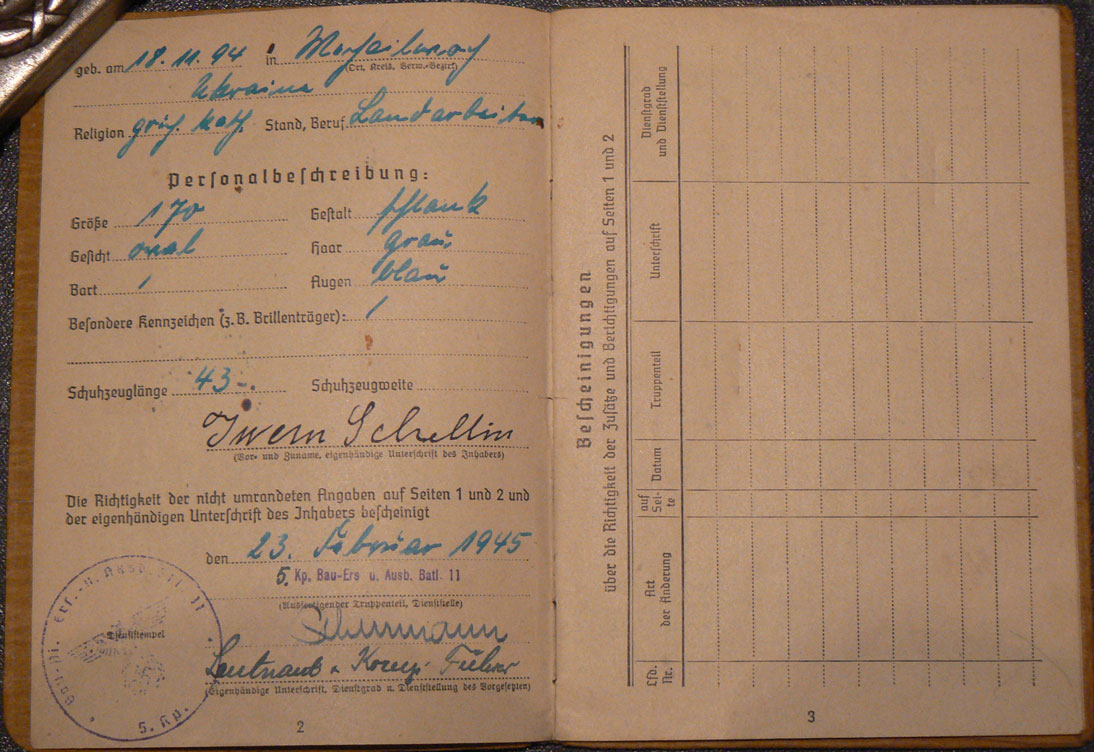 geb. am 18.11.94 in
(Ort, Kreis, Verw.-Bezirk)
Ukraina
Religion grich. kath. Stand, Beruf Landarbeiter
Personalbeschreibung:
Größe 170 Gestalt schlank
Gesicht oval Haar grau
Bart / Augen blau
Besondere Kennzeichen (z.B. Brillenträger): /
Schuhzeuglänge 43-. Schuhzeugweite
Iwem Schellin
(Vor- und Zuname, eigenhändige Unterschrift des Inhabers)
Die Richtigkeit der nicht umrandeten Angaben auf Seiten 1 und 2 und
der eigenhändigen Unterschrift des Inhabers bescheinigt
den 23. Februar 1945
5. Kp. Bau-Ers u. Ausb. Batl. 11
(Ausfertigender Truppenteil, Dienststelle)
Leutnant u. Komp. Führer
(Eigenhändige Unterschrift, Dienstgrad u. Dienststellung des Vorgesetzten)
Dienststempel
5. Kp.
2
Bescheinigungen
über die Richtigkeit der Zusätze und Berichtigungen auf Seiten 1 und 2
Lfd. Nr.
Art der Änderung
auf Sei-te
Datum
Truppenteil
Unterschrift
Dienstgrad und Dienststellung
3